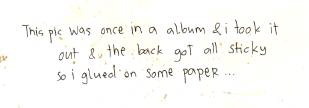 This pic was once in a album & i took it
out & the back got all sticky
so i glued on some paper ...